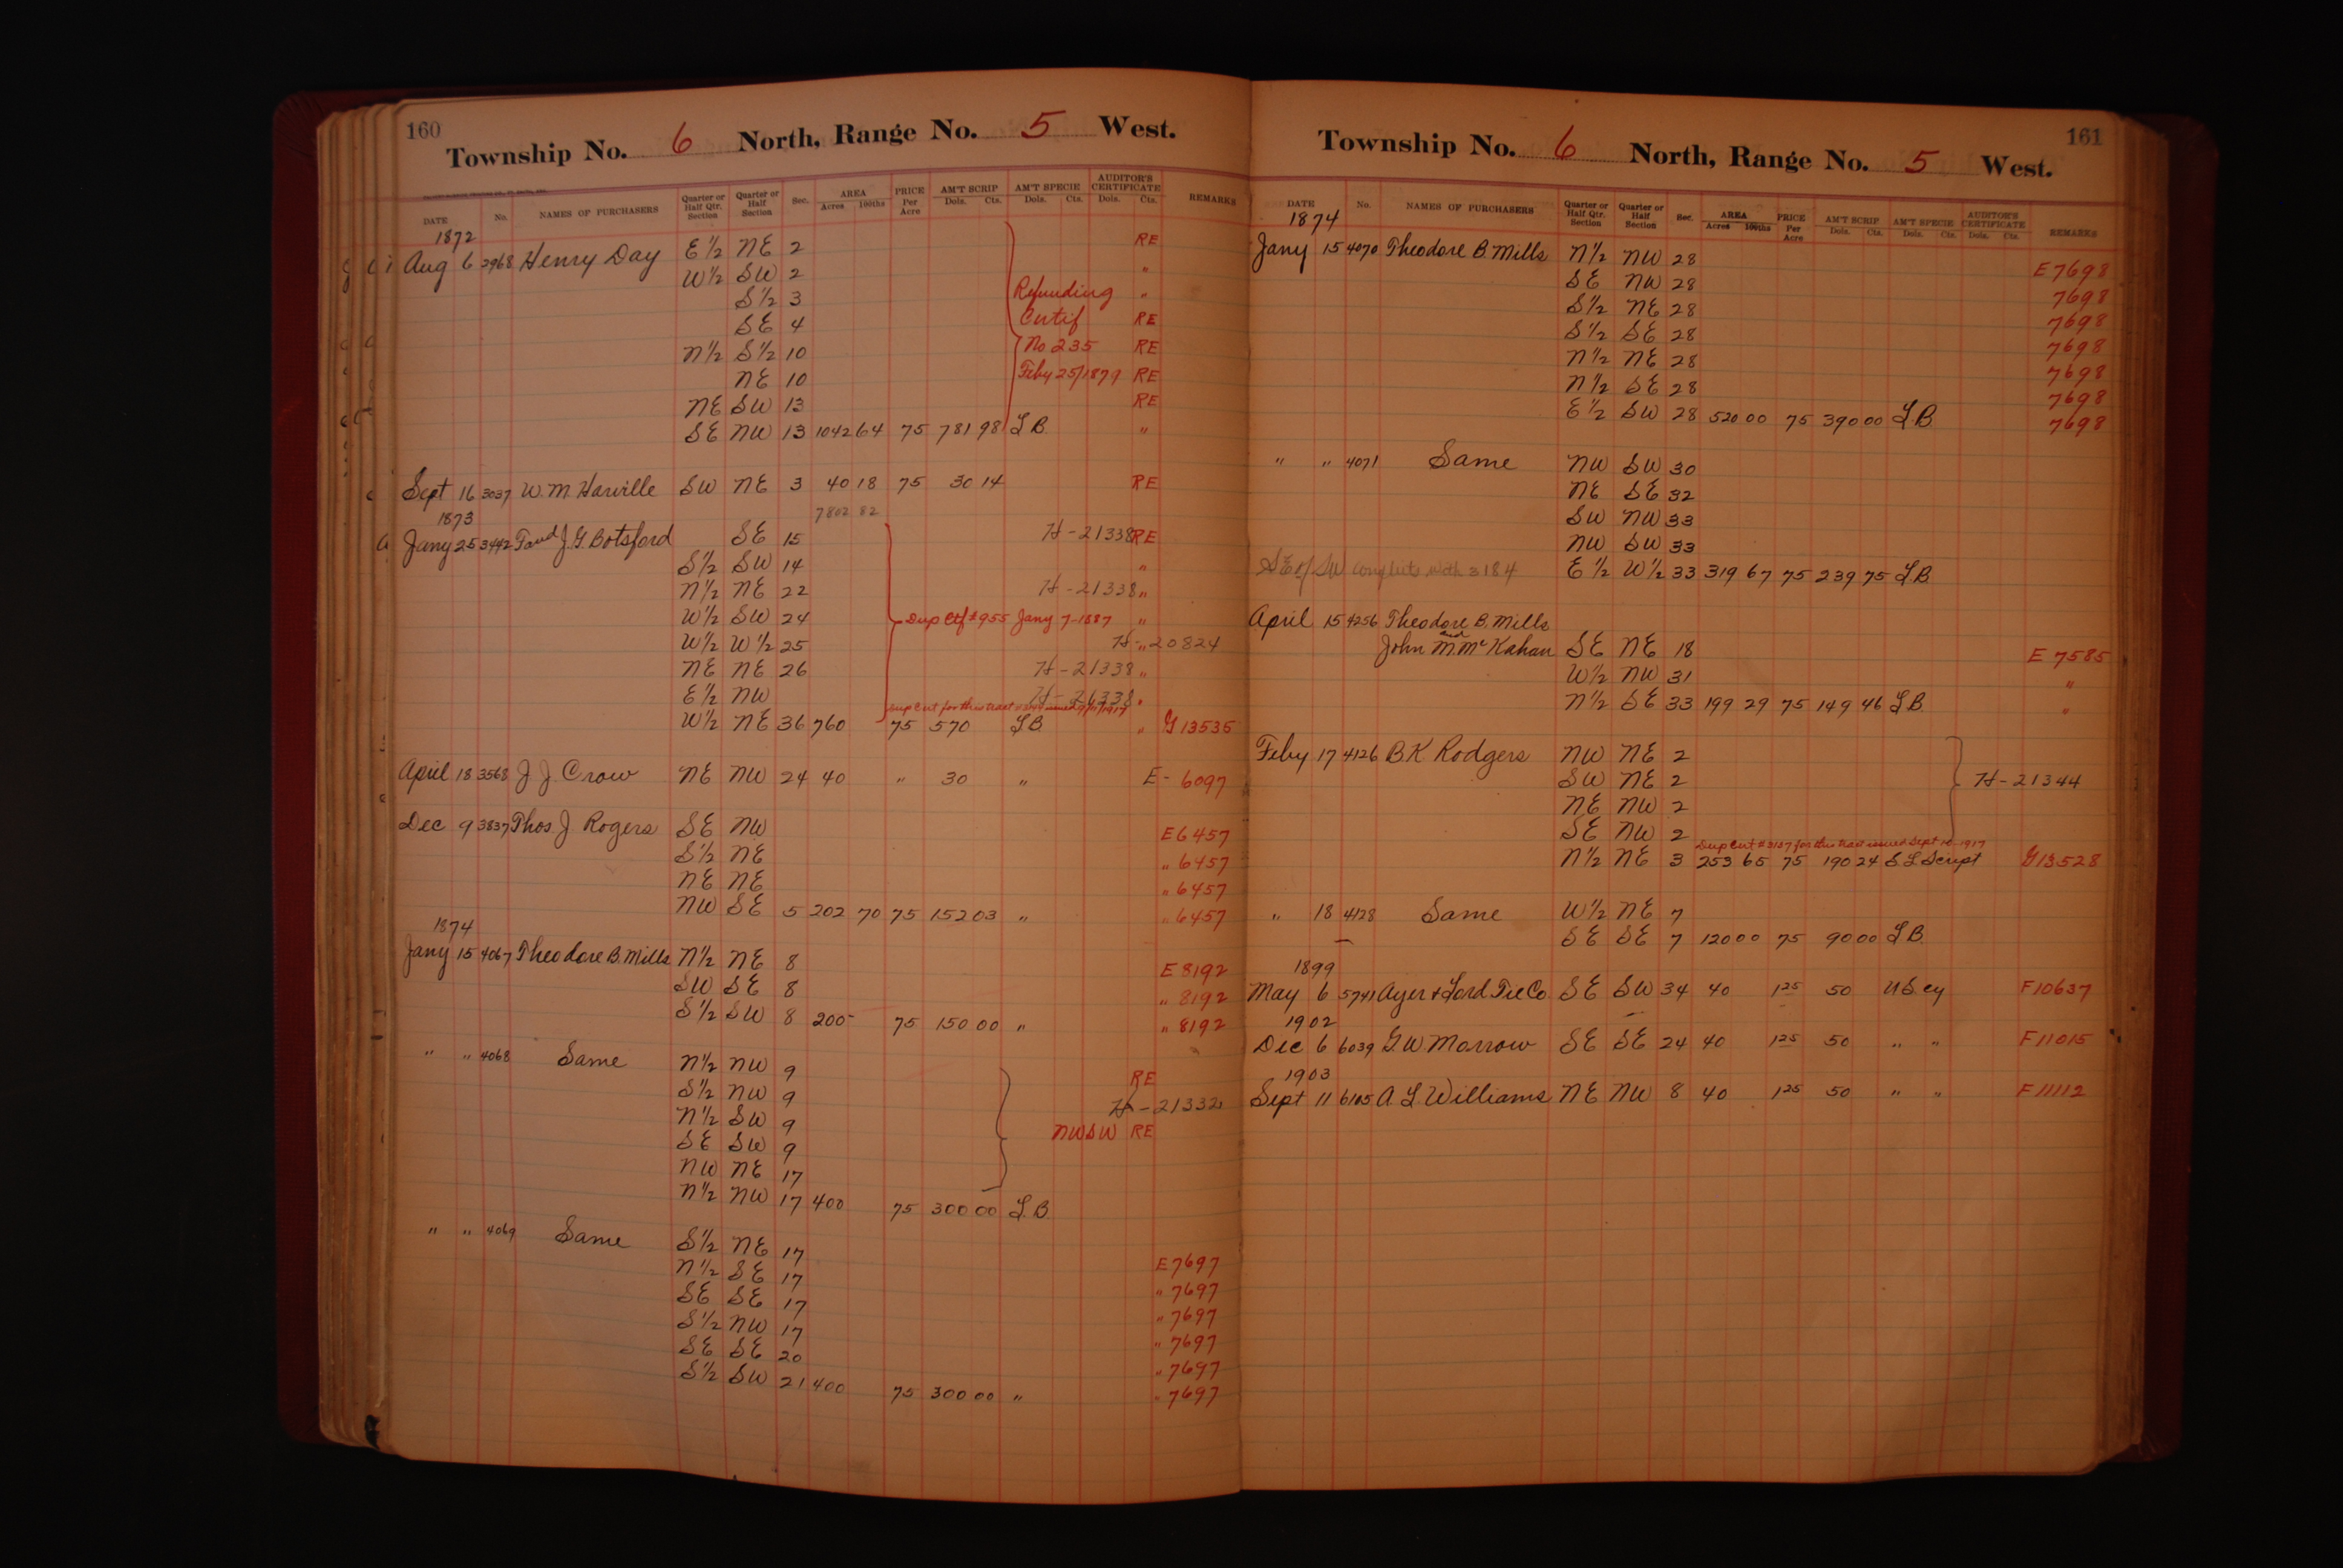 160
Township No. 6 North, Range No. 5 West.
DATE No. NAMES OF PURCHASERS Quarter or Half Qtr. Section Quarter or Half Section Sec. AREA Acres 100ths PRICE Per Acre AM'T SCRIP Dols. Cts. AM'T SPECIE Dols. Cts. AUDITOR'S CERTIFICATE Dols. Cts. REMARKS
1872
Aug 6 2968 Henry Day E ½ NE 2 RE
W½ SW 2 "
S½ 3 Refunding "
SE 4 Certif RE
N½ S½ 10 No 235 RE
NE 10 Feby 25/1879 RE
NE SW 13 RE
SE NW 13 1042 64 75 781 98 L.B. "
Sept 16 3037 W. M. Harville SW NE 3 40 18 75 30 14 RE
1873 7802 82
Jany 25 3442 T and J. G. Botsford SE 15 H-21338 RE
S½ SW 14 "
N½ NE 22 H-21338 "
W½ SW 24 Dup Ctf #955 Jany 7-1887 "
W½ W½ 25 H-20824 "
NE NE 26 H-21338 "
E½ NW H-21338 "
Dup Cert for this tract issued
W½ NE 36 760 75 570 L.B. " G 13535
April 18 3568 J. J. Crow NE NW 24 40 " 30 " E-6097
Dec 9 3837 Thos. J Rogers SE NW E6457
S½ NE " 6457
NE NE " 6457
NW SE 5 202 70 75 152 03 " " 6457
1874
Jany 15 4067 Theodore B. Mills N½ NE 8 E 8192
SW SE 8 " 8192
S½ SW 8 200 75 150 00 " " 8192
" " 4068 Same N½ NW 9 RE
S½ NW 9 H-21332
N½ SW 9 NWSW RE
SE SW 9
NW NE 17
N½ NW 17 400 75 300 00 L.B.
" " 4069 Same S½ NE 17 E 7697
N½ SE 17 " 7697
SE SE 17 " 7697
S½ NW 17 " 7697
SE SE 20 " 7697
S½ SW 21 400 75 300 00 " " 7697
161
Township No. 6 North, Range No. 5 West.
DATE No. NAMES OF PURCHASERS Quarter or Half Qtr. Section Quarter or Half Section Sec. AREA Acres 100ths PRICE Per Acre AM'T SCRIP Dols. Cts. AM'T SPECIE Dols. Cts. AUDITOR'S CERTIFICATE Dols. Cts. REMARKS
1874
Jany 15 4070 Theodore B. Mills N½ NW 28 E 7698
SE NW 28 7698
S½ NE 28 7698
S½ SE 28 7698
N½ NE 28 7698
N½ SE 28 7698
E½ SW 28 520 00 75 390 00 L.B. 7698
" " 4071 Same NW SW 30
NE SE 32
SW NW 33
NW SW 33
SE of SW conflicts with 3184 E½ W½ 33 319 67 75 239 75 L.B.
April 15 4256 Theodore B. Mills
and
John M. McKahan SE NE 18 E 7585
W½ NW 31 "
N½ SE 33 199 29 75 149 46 L.B. "
Feby 17 4126 B.K Rodgers NW NE 2
SW NE 2 H-21344
NE NW 2
SE NW 2
Dup Cert #3137 for this tract issued Sept 10-1917
N½ NE 3 253 65 75 190 24 S L Script G13528
" 18 4128 Same W½ NE 7
SE SE 7 120 00 75 90 00 L.B.
1899
May 6 5741 Ayer & Lord Tie Co. SE SW 34 40 1 25 50 U S cy F10637
1902
Dec 6 6039 G. W. Morrow SE SE 24 40 1 25 50 " " F11015
1903
Sept 11 6105 A. L. Williams NE NW 8 40 1 25 50 " " F11112